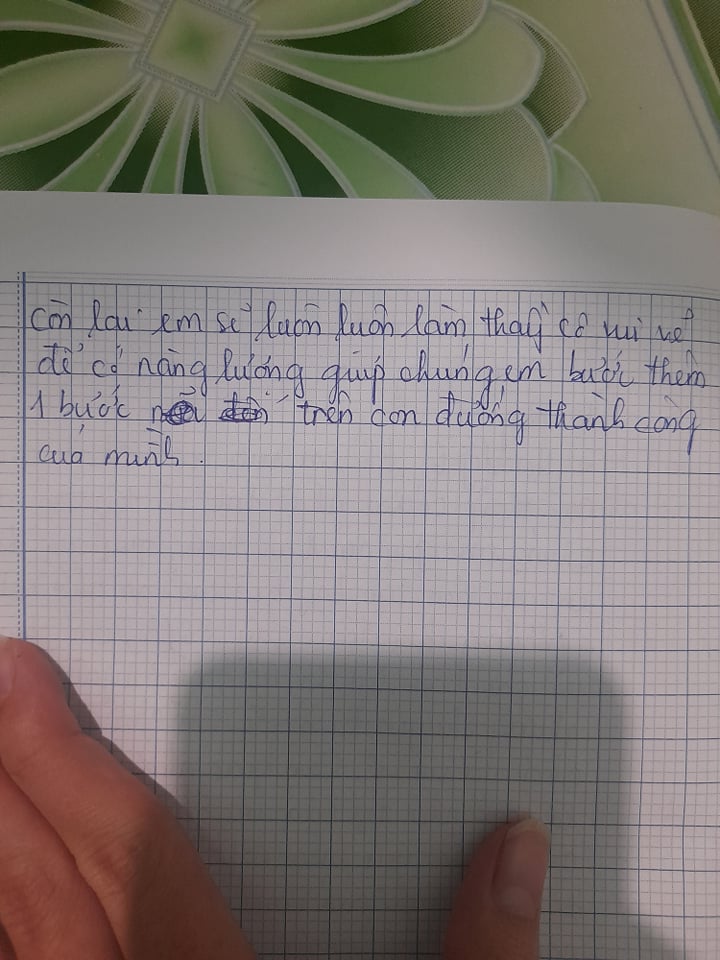 còn lại em sẽ luôn luôn làm thầy cô vui vẻ
để có năng lượng giúp chúng em bước thêm
1 bước trên con đường thành công
của mình.